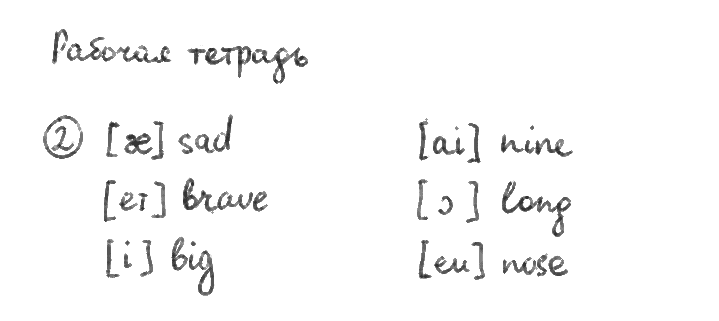 Рабочая тетрадь
② [æ] sad [ai] nine
[eı] brave [ɔ] long
[i] big [eu] nose